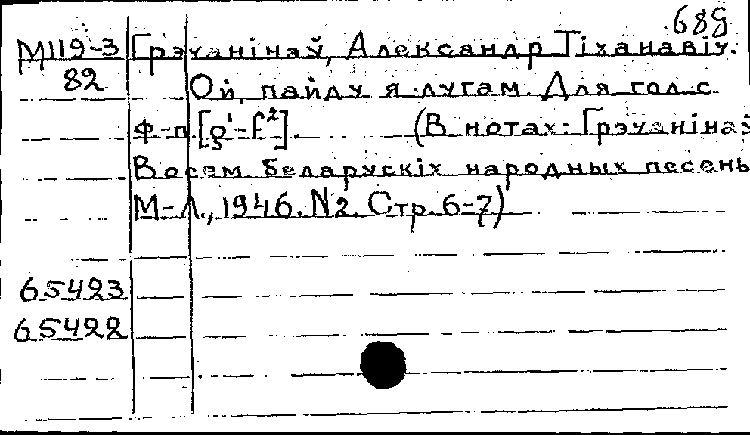 689
М119-3 Грэчанінаў, Александр Ціханавіч.
82 Ой, пайду я лугам. Для гол. с
ф-п. [g¹-f²]. (В нотах: Грэчанінаў
Восем беларускіх народных песень
М-Л., 1946. N2. Стр. 6-7)
65423
65422